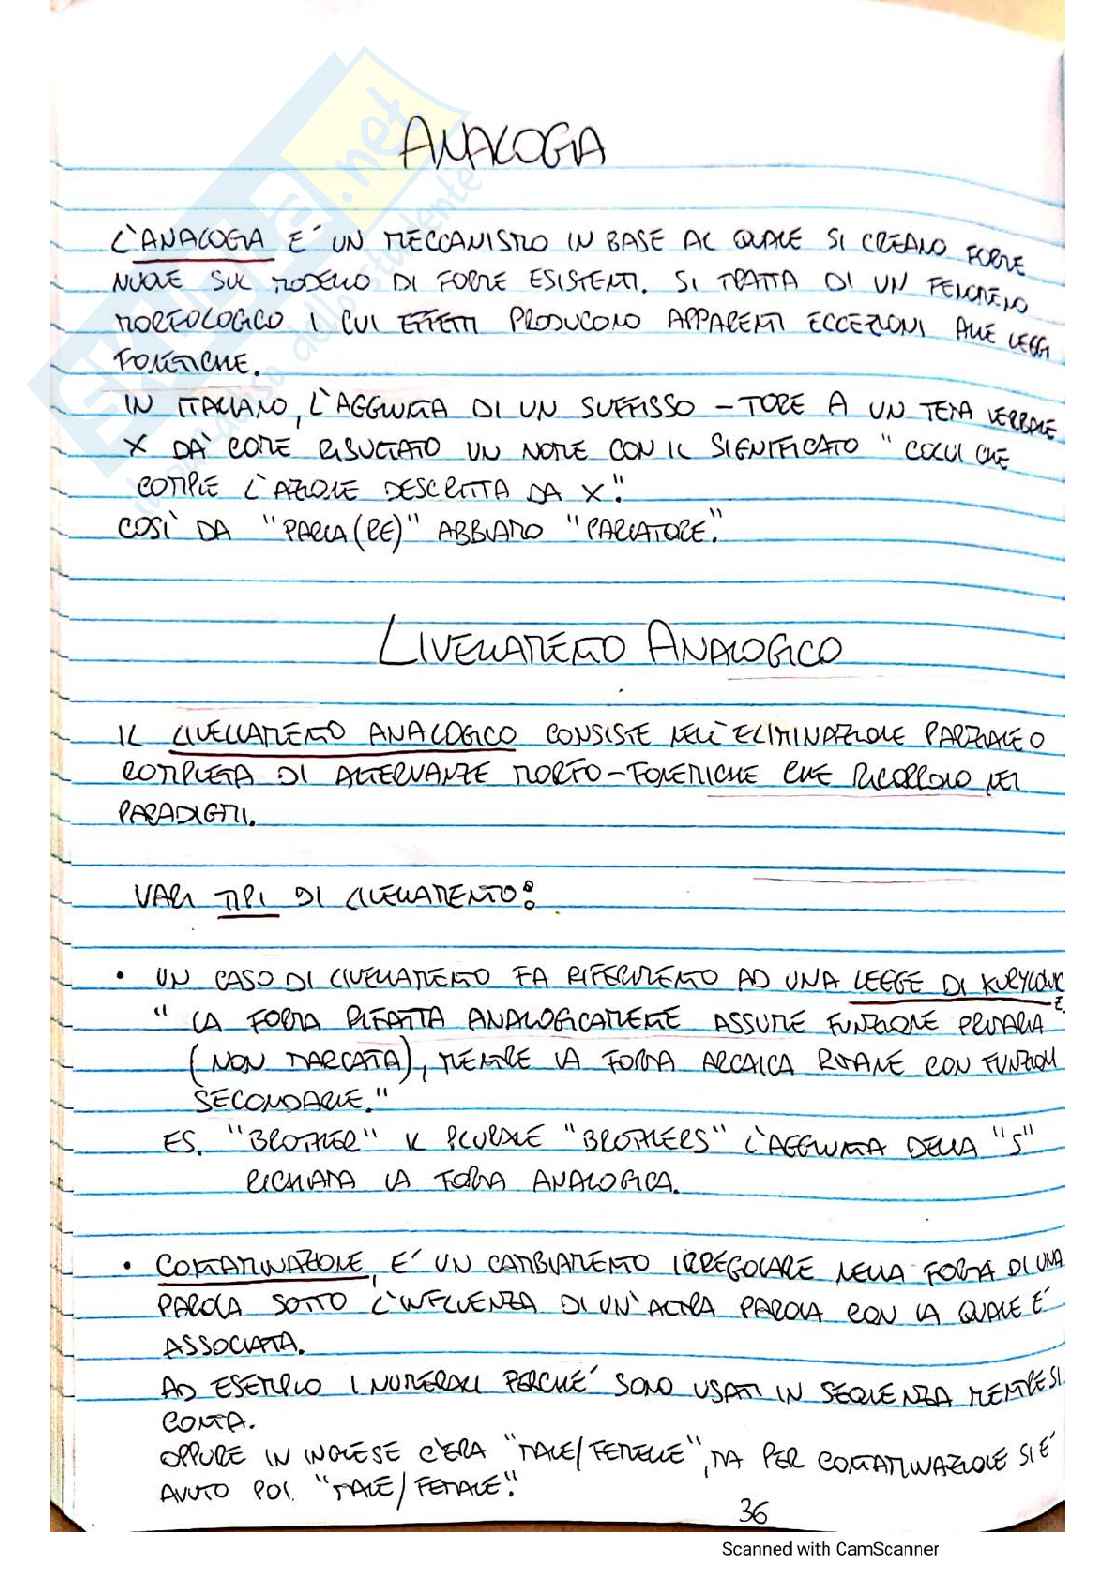 ANALOGIA
L'ANALOGIA E' UN MECCANISMO IN BASE AL QUALE SI CREANO FORME
NUOVE SUL MODELLO DI FORME ESISTENTI. SI TRATTA DI UN FENOMENO
MORFOLOGICO I CUI EFFETTI PRODUCONO APPARENTI ECCEZIONI ALLE LEGGI
FONETICHE.
IN ITALIANO, L'AGGIUNTA DI UN SUFFISSO -TORE A UN TEMA VERBALE
X DA' COME RISULTATO UN NOME CON IL SIGNIFICATO "COLUI CHE
COMPIE L'AZIONE DESCRITTA DA X".
COSÌ DA "PARLA(RE)" ABBIAMO "PARLATORE".
LIVELLAMENTO ANALOGICO
IL LIVELLAMENTO ANALOGICO CONSISTE NELL'ELIMINAZIONE PARZIALE O
COMPLETA DI ALTERNANZE MORFO-FONETICHE CHE RICORRONO NEI
PARADIGMI.
VARI TIPI DI LIVELLAMENTO:
• UN CASO DI LIVELLAMENTO FA RIFERIMENTO AD UNA LEGGE DI KURYLOWIC
Z.
"LA FORMA RIFATTA ANALOGICAMENTE ASSUME FUNZIONE PRIMARIA
(NON MARCATA), MENTRE LA FORMA ARCAICA RIMANE CON FUNZIONI
SECONDARIE."
ES. "BROTHER" IL PLURALE "BROTHERS" L'AGGIUNTA DELLA "S"
RICHIAMA LA FORMA ANALOGICA.
• CONTAMINAZIONE, E' UN CAMBIAMENTO IRREGOLARE NELLA FORMA DI UNA
PAROLA SOTTO L'INFLUENZA DI UN'ALTRA PAROLA CON LA QUALE E'
ASSOCIATA.
AD ESEMPIO I NUMERALI PERCHE' SONO USATI IN SEQUENZA MENTRE SI
CONTA.
OPPURE IN INGLESE C'ERA "MALE/FEMELLE", MA PER CONTAMINAZIONE SI E'
AVUTO POI "MALE/FEMALE".
36
Scanned with CamScanner